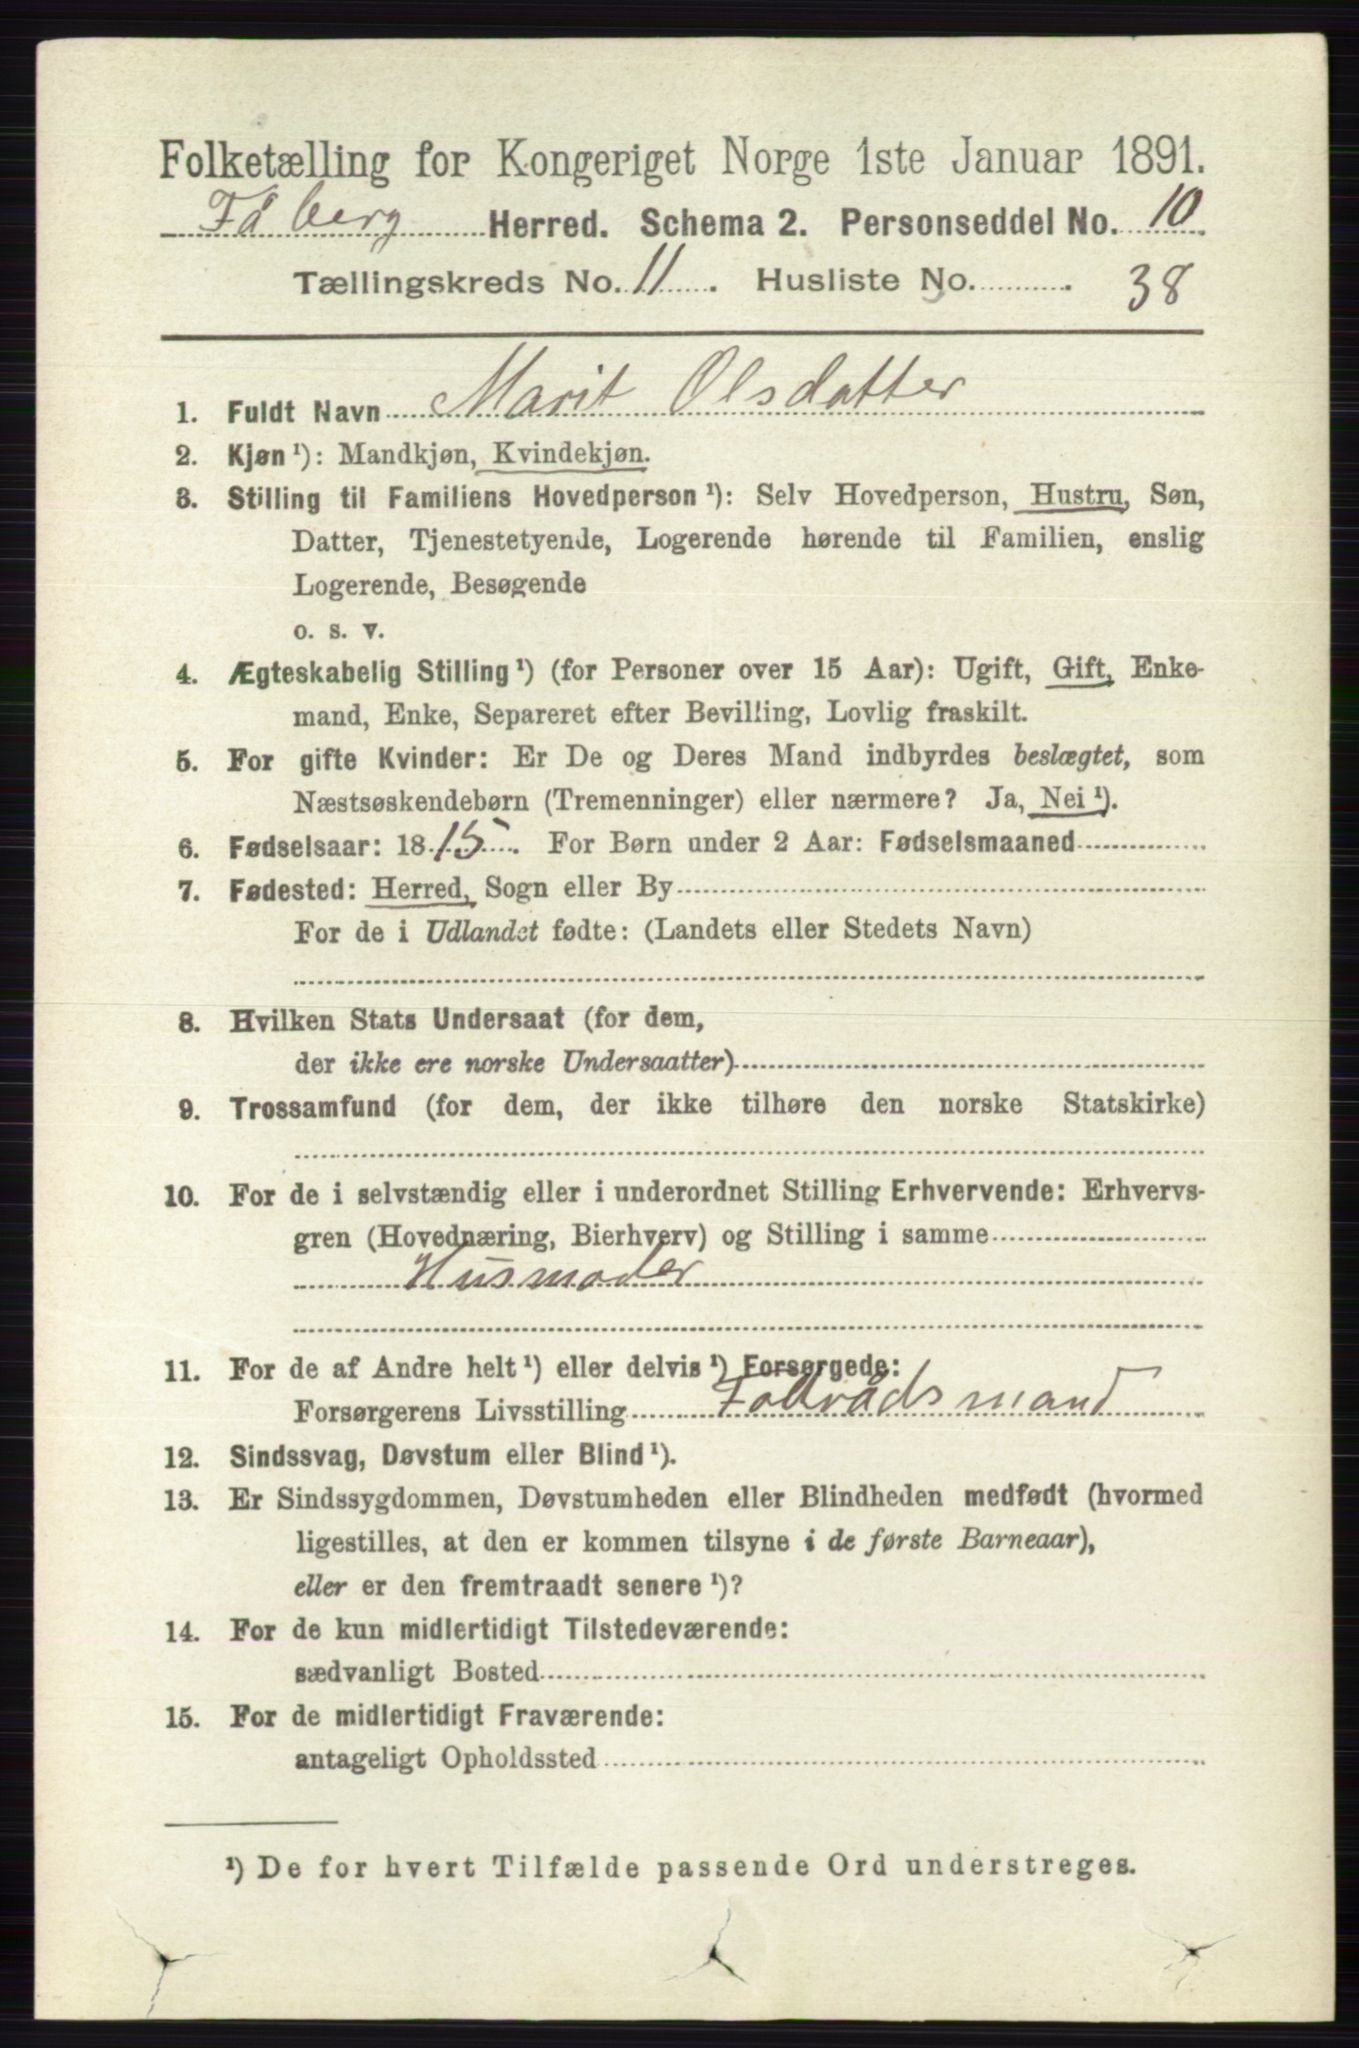 Folketælling for Kongeriget Norge 1ste Januar 1891.
Fåberg Herred. Schema 2. Personseddel No. 10
Tællingskreds No. 11. Husliste No. 38
1. Fuldt Navn Marit Olsdatter
2. Kjøn ¹): Mandkjøn, Kvindekjøn.
3. Stilling til Familiens Hovedperson ¹): Selv Hovedperson, Hustru, Søn,
Datter, Tjenestetyende, Logerende hørende til Familien, enslig
Logerende, Besøgende
o. s. v.
4. Ægteskabelig Stilling ¹) (for Personer over 15 Aar): Ugift, Gift, Enke-
mand, Enke, Separeret efter Bevilling, Lovlig fraskilt.
5. For gifte Kvinder: Er De og Deres Mand indbyrdes beslægtet, som
Næstsøskendebørn (Tremenninger) eller nærmere? Ja, Nei ¹).
6. Fødselsaar: 1815. For Børn under 2 Aar: Fødselsmaaned
7. Fødested: Herred, Sogn eller By
For de i Udlandet fødte: (Landets eller Stedets Navn)
8. Hvilken Stats Undersaat (for dem,
der ikke ere norske Undersaatter)
9. Trossamfund (for dem, der ikke tilhøre den norske Statskirke)
10. For de i selvstændig eller i underordnet Stilling Erhvervende: Erhvervs-
gren (Hovednæring, Bierhverv) og Stilling i samme
Husmoder
11. For de af Andre helt ¹) eller delvis ¹) Forsørgede:
Forsørgerens Livsstilling Follrådsmand
12. Sindssvag, Døvstum eller Blind ¹).
13. Er Sindssygdommen, Døvstumheden eller Blindheden medfødt (hvormed
ligestilles, at den er kommen tilsyne i de første Barneaar),
eller er den fremtraadt senere ¹)?
14. For de kun midlertidigt Tilstedeværende:
sædvanligt Bosted
15. For de midlertidigt Fraværende:
antageligt Opholdssted
¹) De for hvert Tilfælde passende Ord understreges.